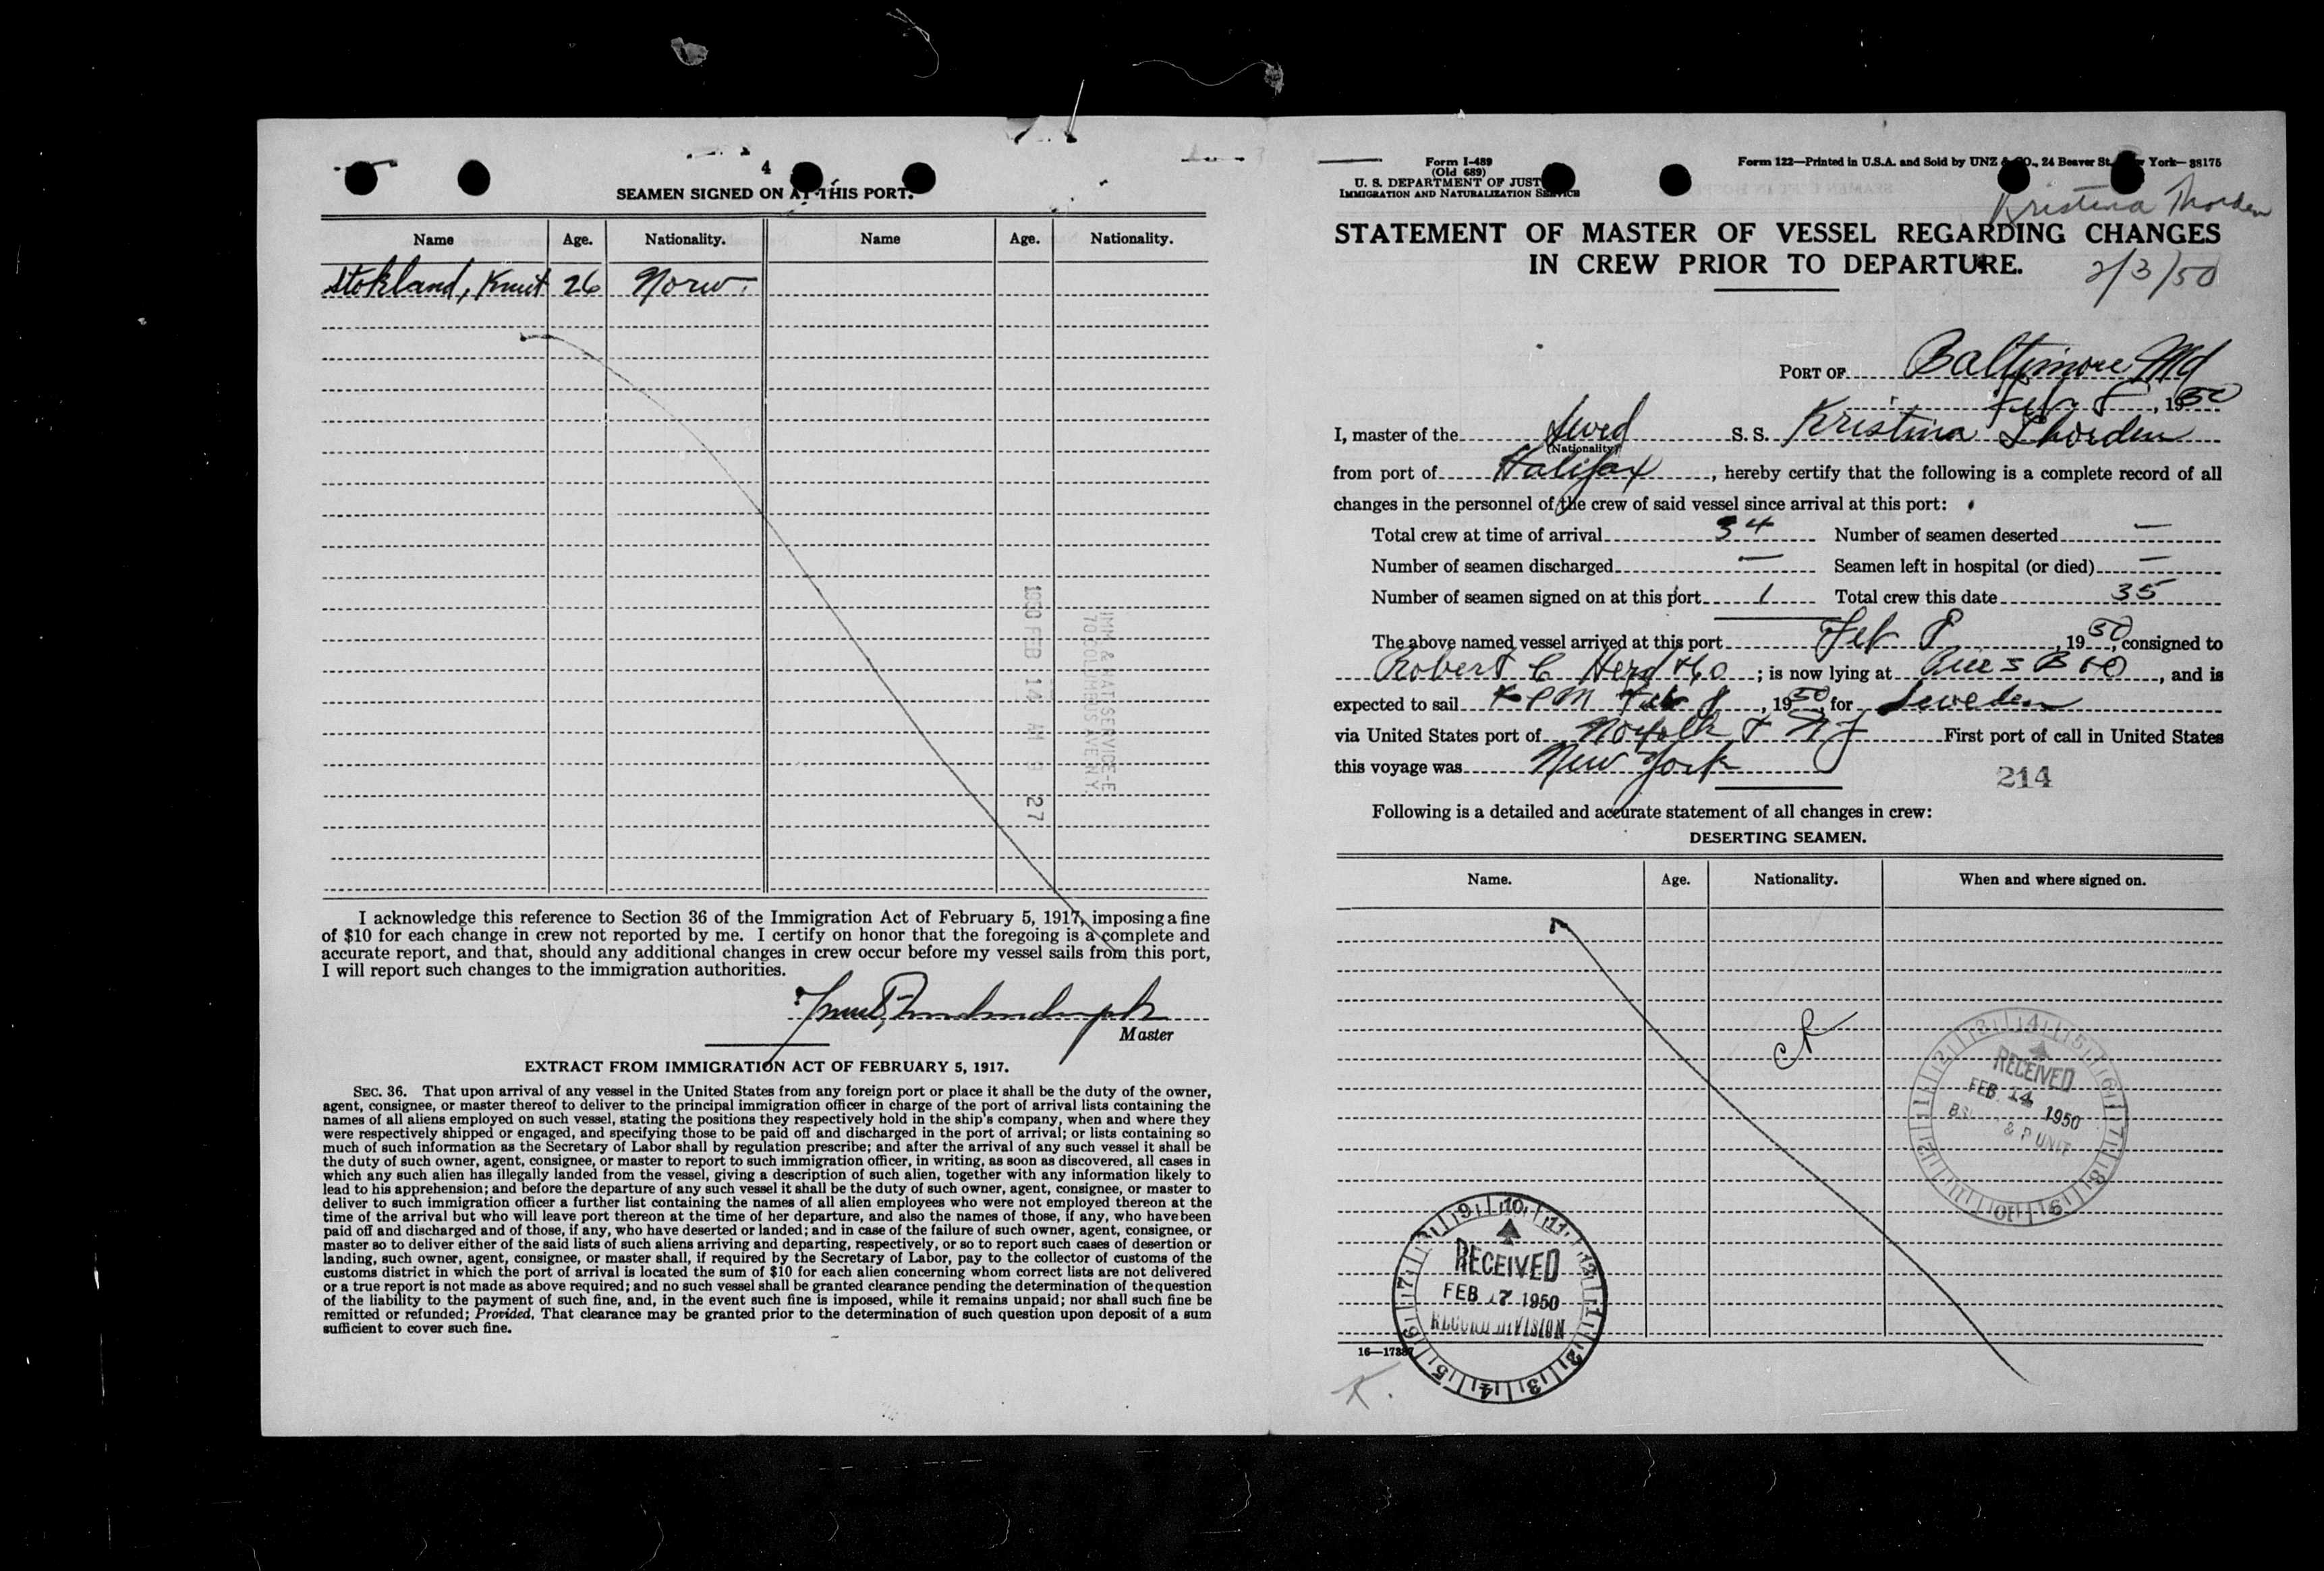 4
SEAMEN SIGNED ON AT THIS PORT.
Name Age. Nationality. Name Age. Nationality.
Stokland, Knut 26 Norw.
1950 FEB 14 AM 9 27
IMM & NAT SERVICE-E
70 COLUMBUS AVE. N.Y.
I acknowledge this reference to Section 36 of the Immigration Act of February 5, 1917, imposing a fine
of $10 for each change in crew not reported by me. I certify on honor that the foregoing is a complete and
accurate report, and that, should any additional changes in crew occur before my vessel sails from this port,
I will report such changes to the immigration authorities.
Master
EXTRACT FROM IMMIGRATION ACT OF FEBRUARY 5, 1917.
SEC. 36. That upon arrival of any vessel in the United States from any foreign port or place it shall be the duty of the owner,
agent, consignee, or master thereof to deliver to the principal immigration officer in charge of the port of arrival lists containing the
names of all aliens employed on such vessel, stating the positions they respectively hold in the ship's company, when and where they
were respectively shipped or engaged, and specifying those to be paid off and discharged in the port of arrival; or lists containing so
much of such information as the Secretary of Labor shall by regulation prescribe; and after the arrival of any such vessel it shall be
the duty of such owner, agent, consignee, or master to report to such immigration officer, in writing, as soon as discovered, all cases in
which any such alien has illegally landed from the vessel, giving a description of such alien, together with any information likely to
lead to his apprehension; and before the departure of any such vessel it shall be the duty of such owner, agent, consignee, or master to
deliver to such immigration officer a further list containing the names of all alien employees who were not employed thereon at the
time of the arrival but who will leave port thereon at the time of her departure, and also the names of those, if any, who have been
paid off and discharged and of those, if any, who have deserted or landed; and in case of the failure of such owner, agent, consignee, or
master so to deliver either of the said lists of such aliens arriving and departing, respectively, or so to report such cases of desertion or
landing, such owner, agent, consignee, or master shall, if required by the Secretary of Labor, pay to the collector of customs of the
customs district in which the port of arrival is located the sum of $10 for each alien concerning whom correct lists are not delivered
or a true report is not made as above required; and no such vessel shall be granted clearance pending the determination of the question
of the liability to the payment of such fine, and, in the event such fine is imposed, while it remains unpaid; nor shall such fine be
remitted or refunded; Provided, That clearance may be granted prior to the determination of such question upon deposit of a sum
sufficient to cover such fine.
Form I-489
(Old 689)
U. S. DEPARTMENT OF JUST
IMMIGRATION AND NATURALIZATION SERVICE
Form 122—Printed in U.S.A. and Sold by UNZ & CO., 24 Beaver St. New York—38175
Kristina Thorden
STATEMENT OF MASTER OF VESSEL REGARDING CHANGES
IN CREW PRIOR TO DEPARTURE.
2/3/50
PORT OF Baltimore Md
Feb 8, 1950
I, master of the Swed S. S. Kristina Thorden
(Nationality)
from port of Halifax, hereby certify that the following is a complete record of all
changes in the personnel of the crew of said vessel since arrival at this port:
Total crew at time of arrival 34 Number of seamen deserted —
Number of seamen discharged — Seamen left in hospital (or died) —
Number of seamen signed on at this port 1 Total crew this date 35
The above named vessel arrived at this port Feb 8, 1950, consigned to
Robert C Herd & Co; is now lying at Pier 5 B & O, and is
expected to sail PM Feb 8, 1950, for Sweden
via United States port of Norfolk & NJ First port of call in United States
this voyage was New York
214
Following is a detailed and accurate statement of all changes in crew:
DESERTING SEAMEN.
Name. Age. Nationality. When and where signed on.
RECEIVED
FEB 14 1950
& P UNIT
RECEIVED
FEB 17 1950
RECORD DIVISION
16—17387
K.